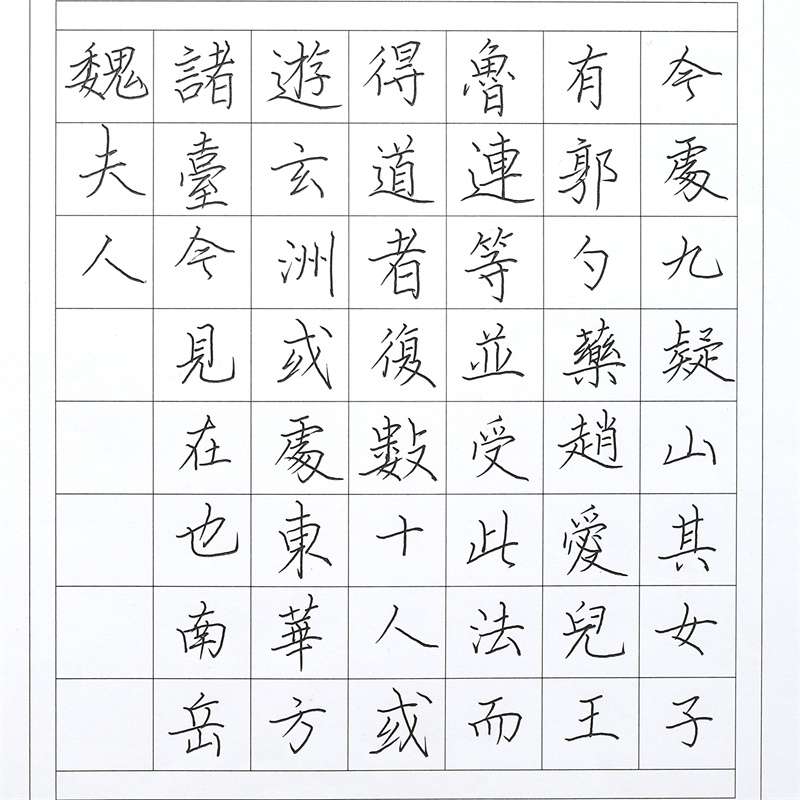 今處九疑山其女子
有郭勺藥趙愛兒王
魯連等並受此法而
得道者復數十人或
遊玄洲或處東華方
諸臺今見在也南岳
魏夫人